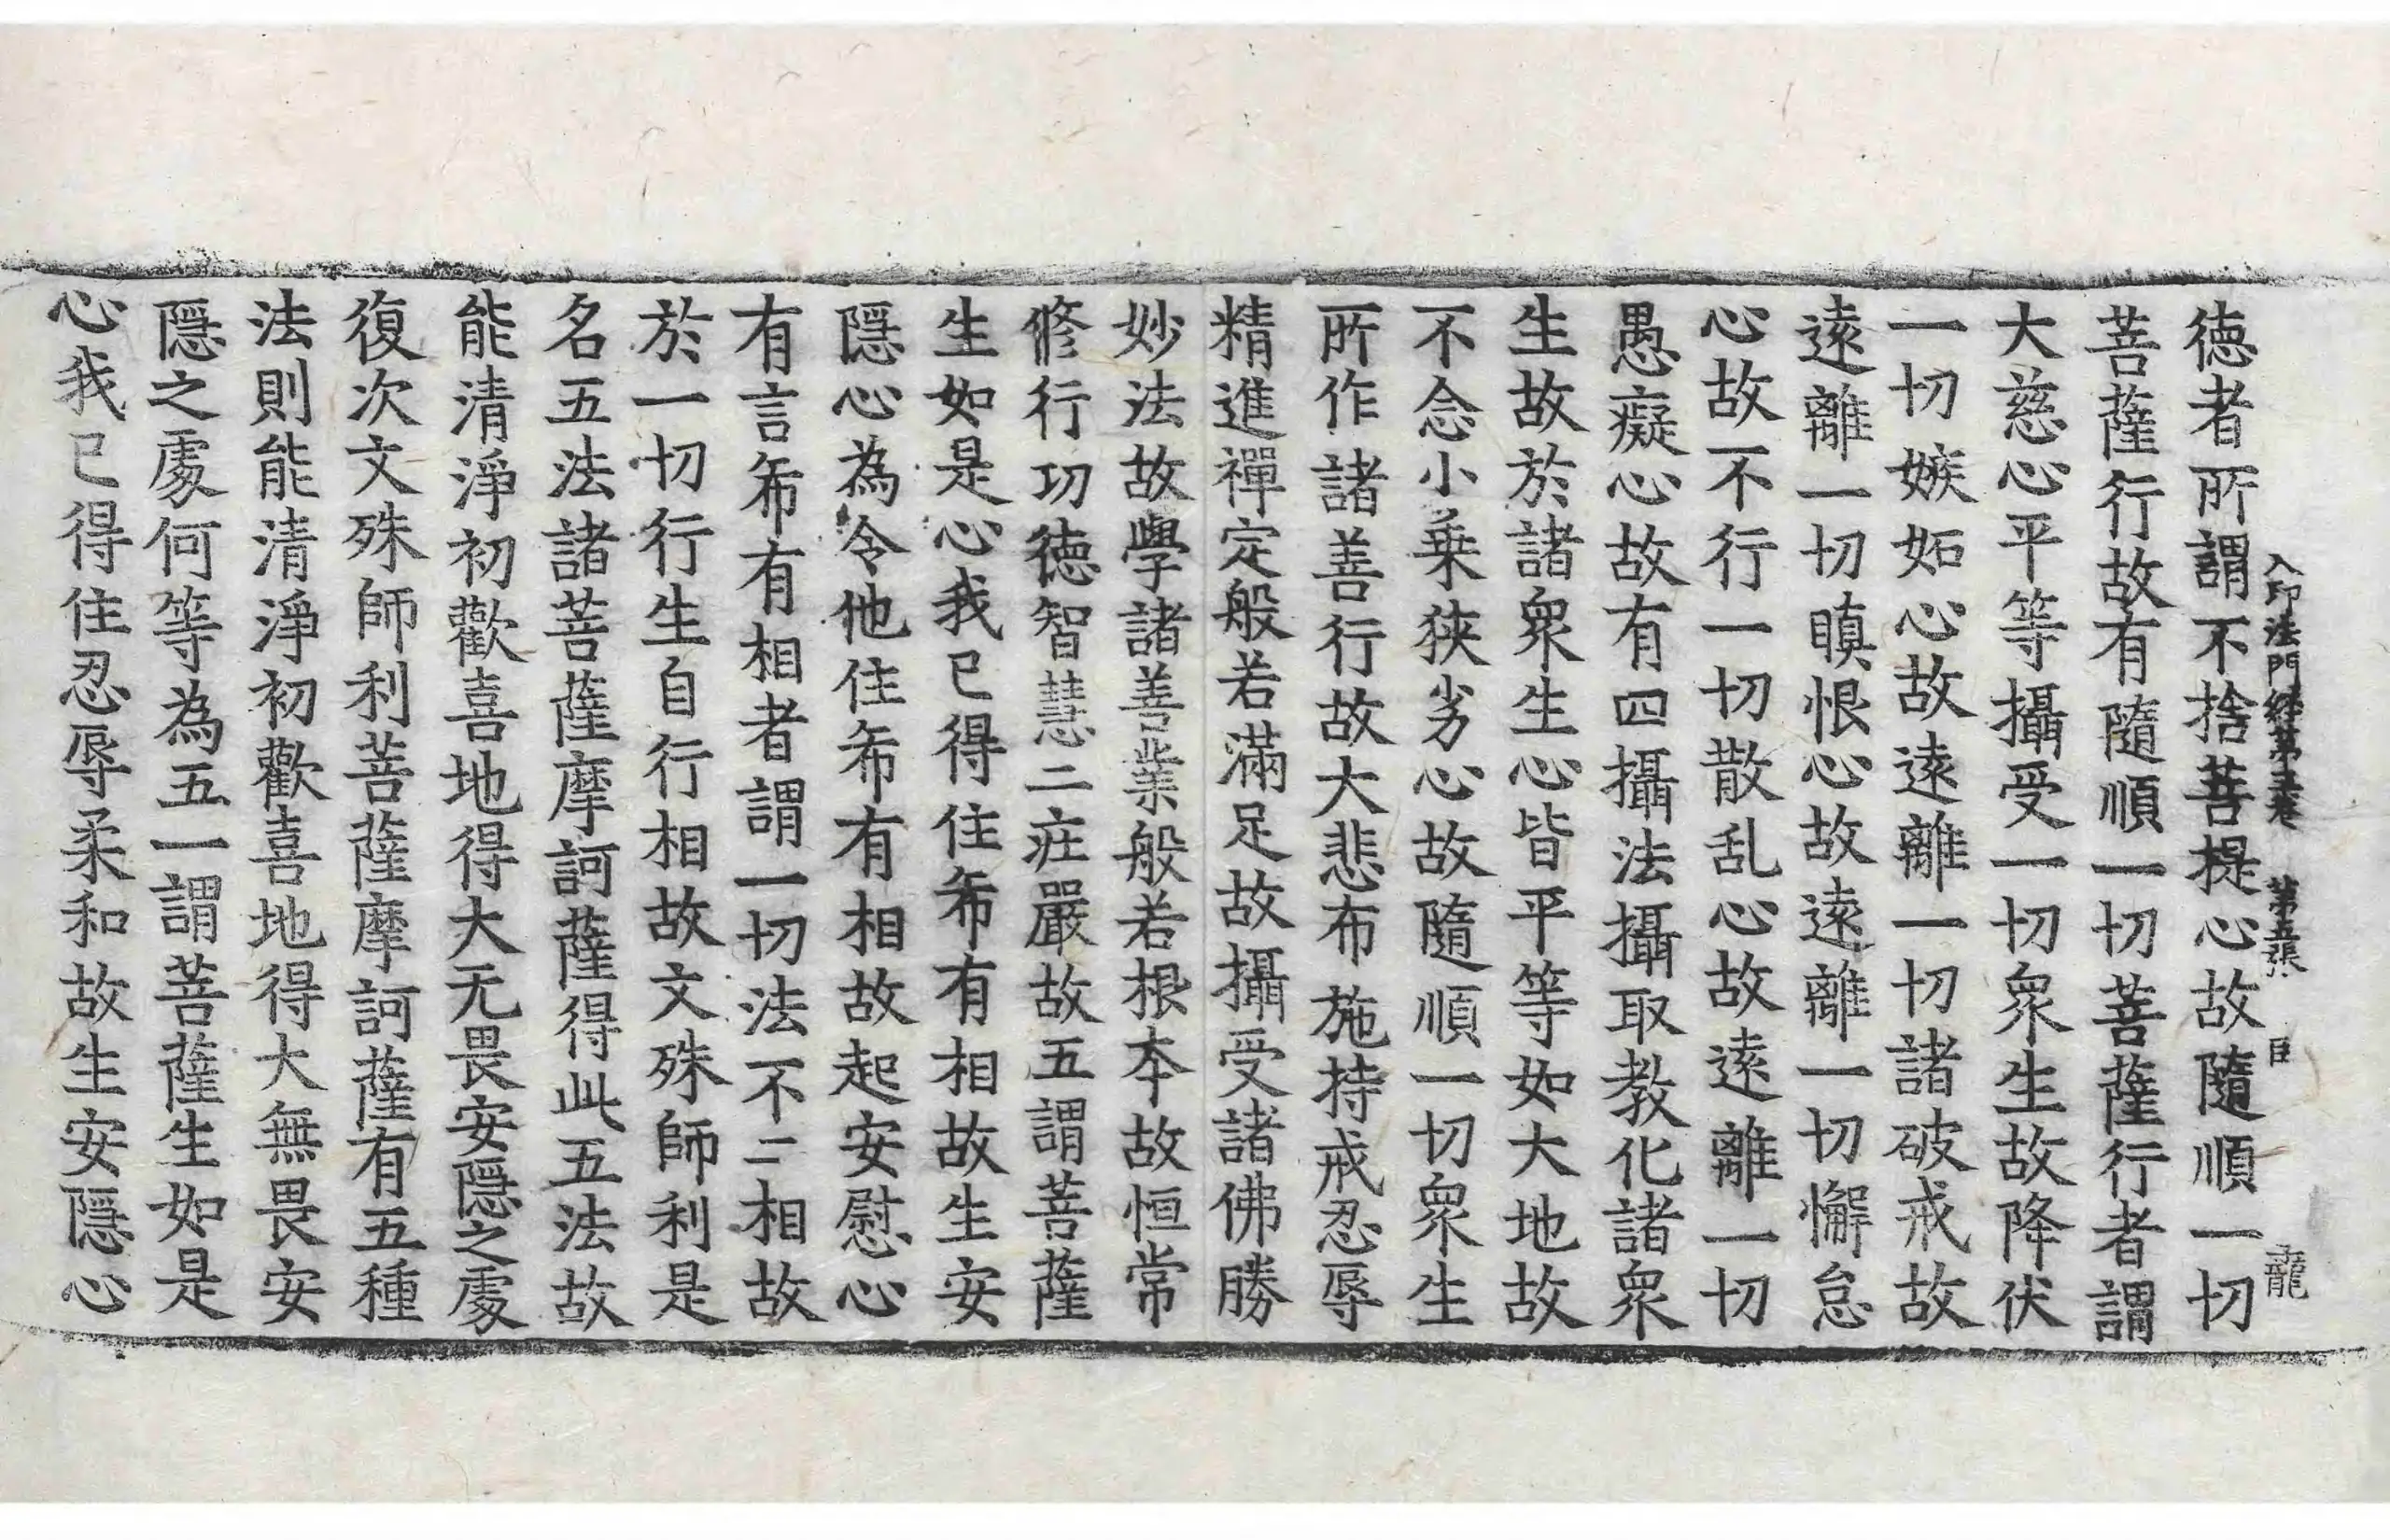 入印法門経第三卷 第五張 臣 龍
徳者所謂不捨菩提心故隨順一切
菩薩行故有隨順一切菩薩行者謂
大慈心平等攝受一切衆生故降伏
一切嫉妬心故遠離一切諸破戒故
遠離一切瞋恨心故遠離一切懈怠
心故不行一切散乱心故遠離一切
愚癡心故有四攝法攝取教化諸衆
生故於諸衆生心皆平等如大地故
不念小乗狹劣心故隨順一切衆生
所作諸善行故大悲布施持戒忍辱
精進禪定般若滿足故攝受諸佛勝
妙法故學諸善業般若根本故恒常
修行功徳智慧二莊嚴故五謂菩薩
生如是心我已得住希有相故生安
隱心為令他住希有相故起安慰心
有言希有相者謂一切法不二相故
於一切行生自行相故文殊師利是
名五法諸菩薩摩訶薩得此五法故
能清淨初歡喜地得大无畏安隱之處
復次文殊師利菩薩摩訶薩有五種
法則能清淨初歡喜地得大無畏安
隱之處何等為五一謂菩薩生如是
心我已得住忍辱柔和故生安隱心